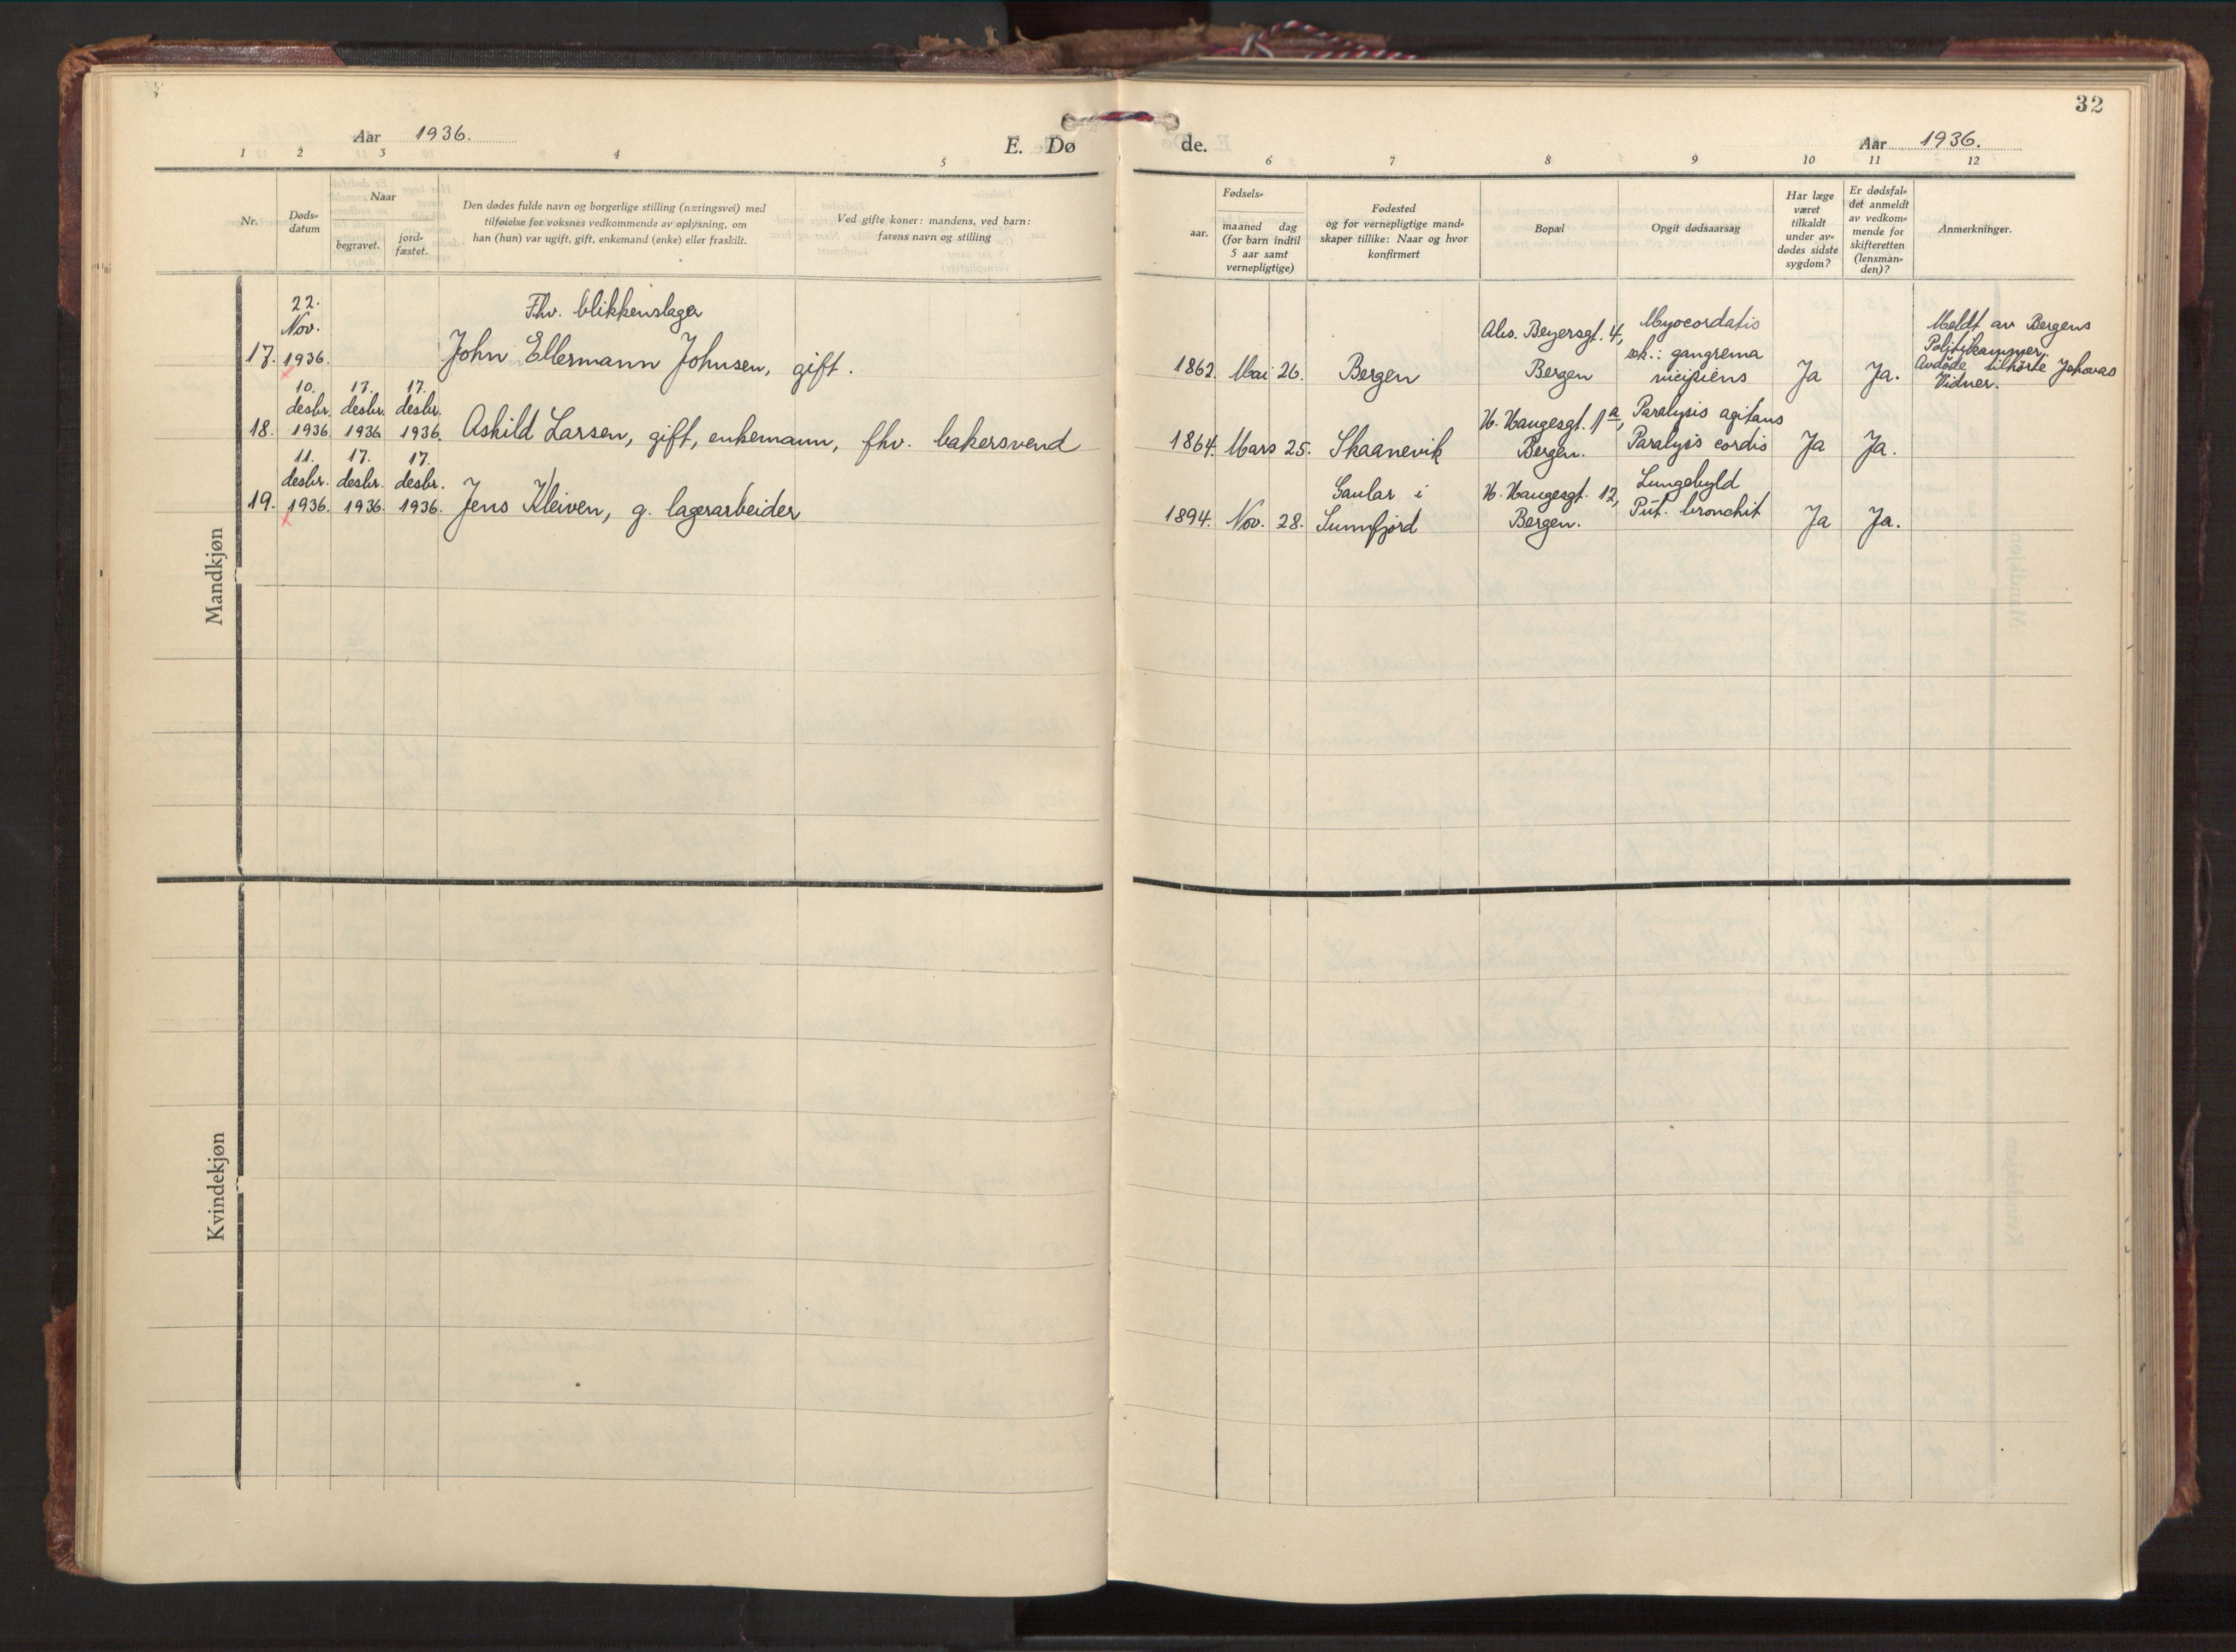 32
Aar 1936.
E. Dø
de.
Aar 1936.
1 2 3 4 5
6 7 8 9 10 11 12
Nr.
Døds-
datum
Naar
begravet.
jord-
fæstet.
Den dødes fulde navn og borgerlige stilling (næringsvei) med
tilføielse for voksnes vedkommende av oplysning, om
han (hun) var ugift, gift, enkemand (enke) eller fraskilt.
Ved gifte koner: mandens, ved barn:
farens navn og stilling
Fødsels-
aar.
maaned dag
(for barn indtil
5 aar samt
vernepligtige)
Fødested
og for vernepligtige mand-
skaper tillike: Naar og hvor
konfirmert
Bopæl
Opgit dødsaarsag
Har læge
været
tilkaldt
under av-
dødes sidste
sygdom?
Er dødsfal-
det anmeldt
av vedkom-
mende for
skifteretten
(lensman-
den)?
Anmerkninger.
Mandkjøn
17.
22.
Nov.
1936.
Fhv. blikkenslager
John Ellermann Johnsen, gift.
1862. Mai 26.
Bergen
Ales. Beyersgt. 4,
Bergen
Myocordatis
sek.: gangrema
incipiens
Ja
Ja.
Meldt av Bergens
Politikammer.
Avdøde tilhørte Jehovas
Vidner.
18.
10.
desbr.
1936.
17.
desbr.
1936
17.
desbr.
1936.
Askild Larsen, gift, enkemann, fhv. bakersvend
1864. Mars 25.
Skaanevik
H. Haugesgt. 1a,
Bergen.
Paralysis agitans
Paralysis cordis
Ja
Ja.
19.
11.
desbr.
1936.
17.
desbr.
1936.
17.
desbr.
1936.
Jens Kleiven, g. lagerarbeider
1894. Nov. 28.
Gaular i
Sunnfjord
H. Haugesgt. 12,
Bergen.
Lungebyld
Put. bronchit
Ja
Ja.
Kvindekjøn